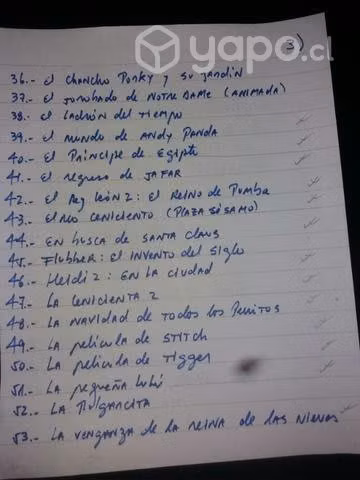 yapo.cl
3)
36.- El Chancho Porky y su Jardín
37.- El Jorobado de Notre Dame (ANIMADA)
38.- El Ladrón del Tiempo
39.- El mundo de Andy Panda
40.- El Príncipe de Egipto
41.- El regreso de JAFAR
42.- El Rey León 2: El Reino de Pumba
43.- El Río Ceniciento (PLAZA SÉSAMO)
44.- EN busca de SANTA Claus
45.- Flubber: El INVENTO del Siglo
46.- Heidi 2: EN LA CIUDAD
47.- LA CENICIENTA 2
48.- LA NAVIDAD de TODOS LOS Perritos
49.- LA película de STITCH
50.- LA película de TIGGER
51.- LA pequeña Lulú
52.- LA PULGARCITA
53.- LA VENGANZA de LA REINA de LAS NIEVES